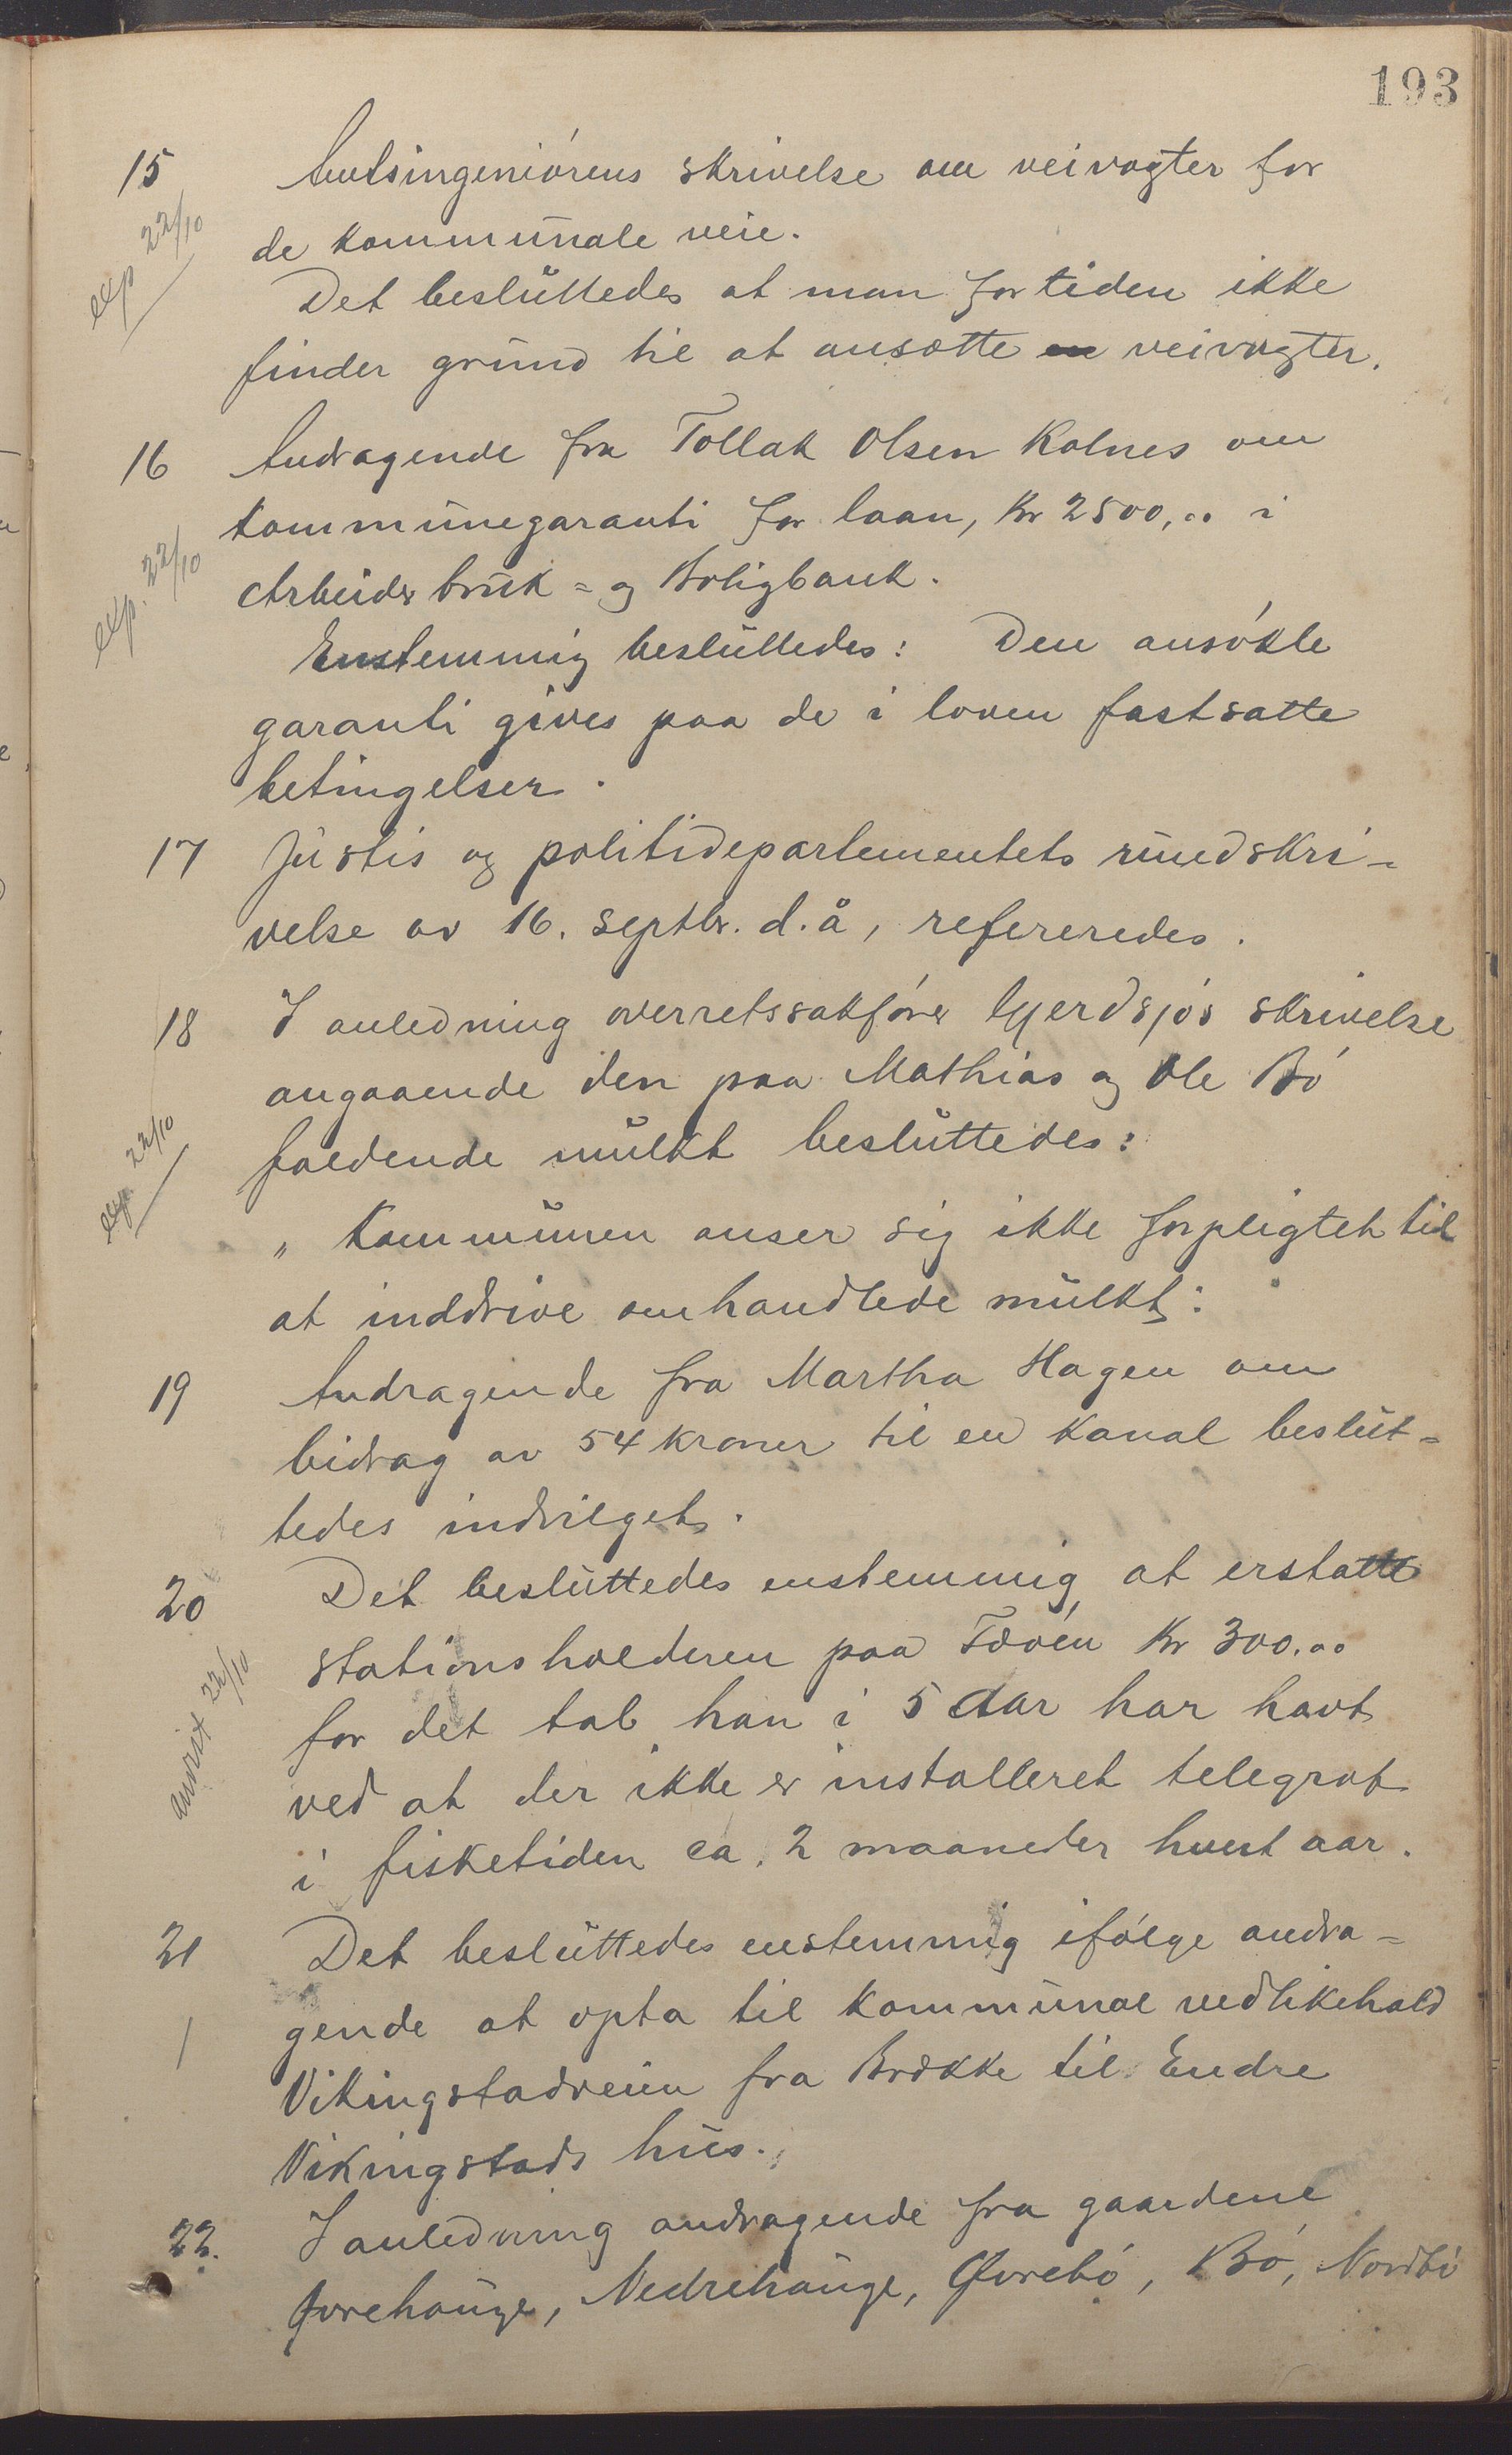 193
15 Amtsingeniörens skrivelse om veivogter for
exp 22/10
de kommunale veie.
Det besluttedes at man for tiden ikke
finder grund til at ansætte veivogter.
16 Andragende fra Tollak Olsen Kolnes om
kommunegaranti for laan, Kr 2500,00 i
exp. 22/10
Arbeiderbruk- og Boligbank.
Enstemmig besluttedes: Den ansökte
garanti gives paa de i loven fastsatte
betingelser.
17 Justis og politidepartementets rundskri-
velse av 16. septbr. d.å, refereredes.
18 I anledning overretssakförer Gjerdsjös skrivelse
angaaende den paa Mathias og Ole Bö
exp. 22/10
faldende mulkt besluttedes:
" Kommunen anser sig ikke forpligtet til
at inddrive omhandlede mulkt:
19 Andragende fra Martha Hagen om
bidrag av 54 kroner til en kanal beslut-
tedes indvilget.
20 Det besluttedes enstemmig at erstatte
stationsholderen paa Fæöen Kr 300.00
anvist 22/10
for det tab han i 5 Aar har havt
ved at der ikke er installeret telegraf
i fisketiden ca. 2 maaneder hvert aar.
21 Det besluttedes enstemmig ifölge andra-
gende at opta til kommunal vedlikehold
Vikingstadveien fra Brække til Endre
Vikingstads hus.
22. I anledning andragende fra gaardene
Övrehauge, Nedrehauge, Övrebö, Bö, Nordbö